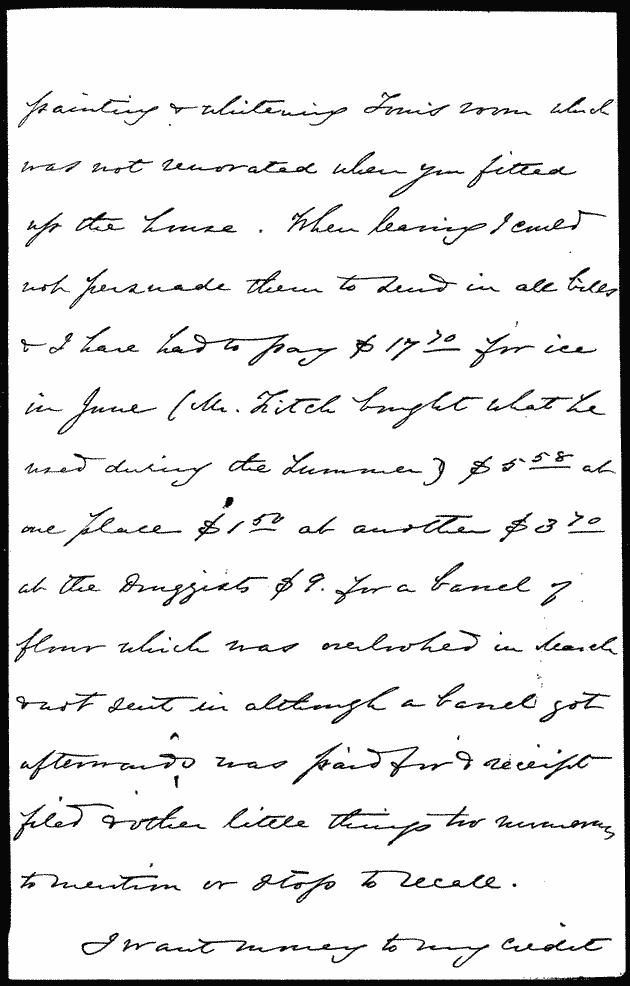 painting & whitening Tom's room which
was not renovated when you fitted
up the house. When leaving I could
not persuade them to send in all bills
& I have had to pay $17 70 for ice
in June (Mr. Fitch bought what he
used during the Summer) $5 58 at
one place $1 50 at another $3 70
at the Druggists $9. for a barrel of
flour which was overlooked in March
& not sent in although a barrel got
afterwards was paid for & receipt
filed & other little things too numerous
to mention or stop to recall.
I want money to my credit